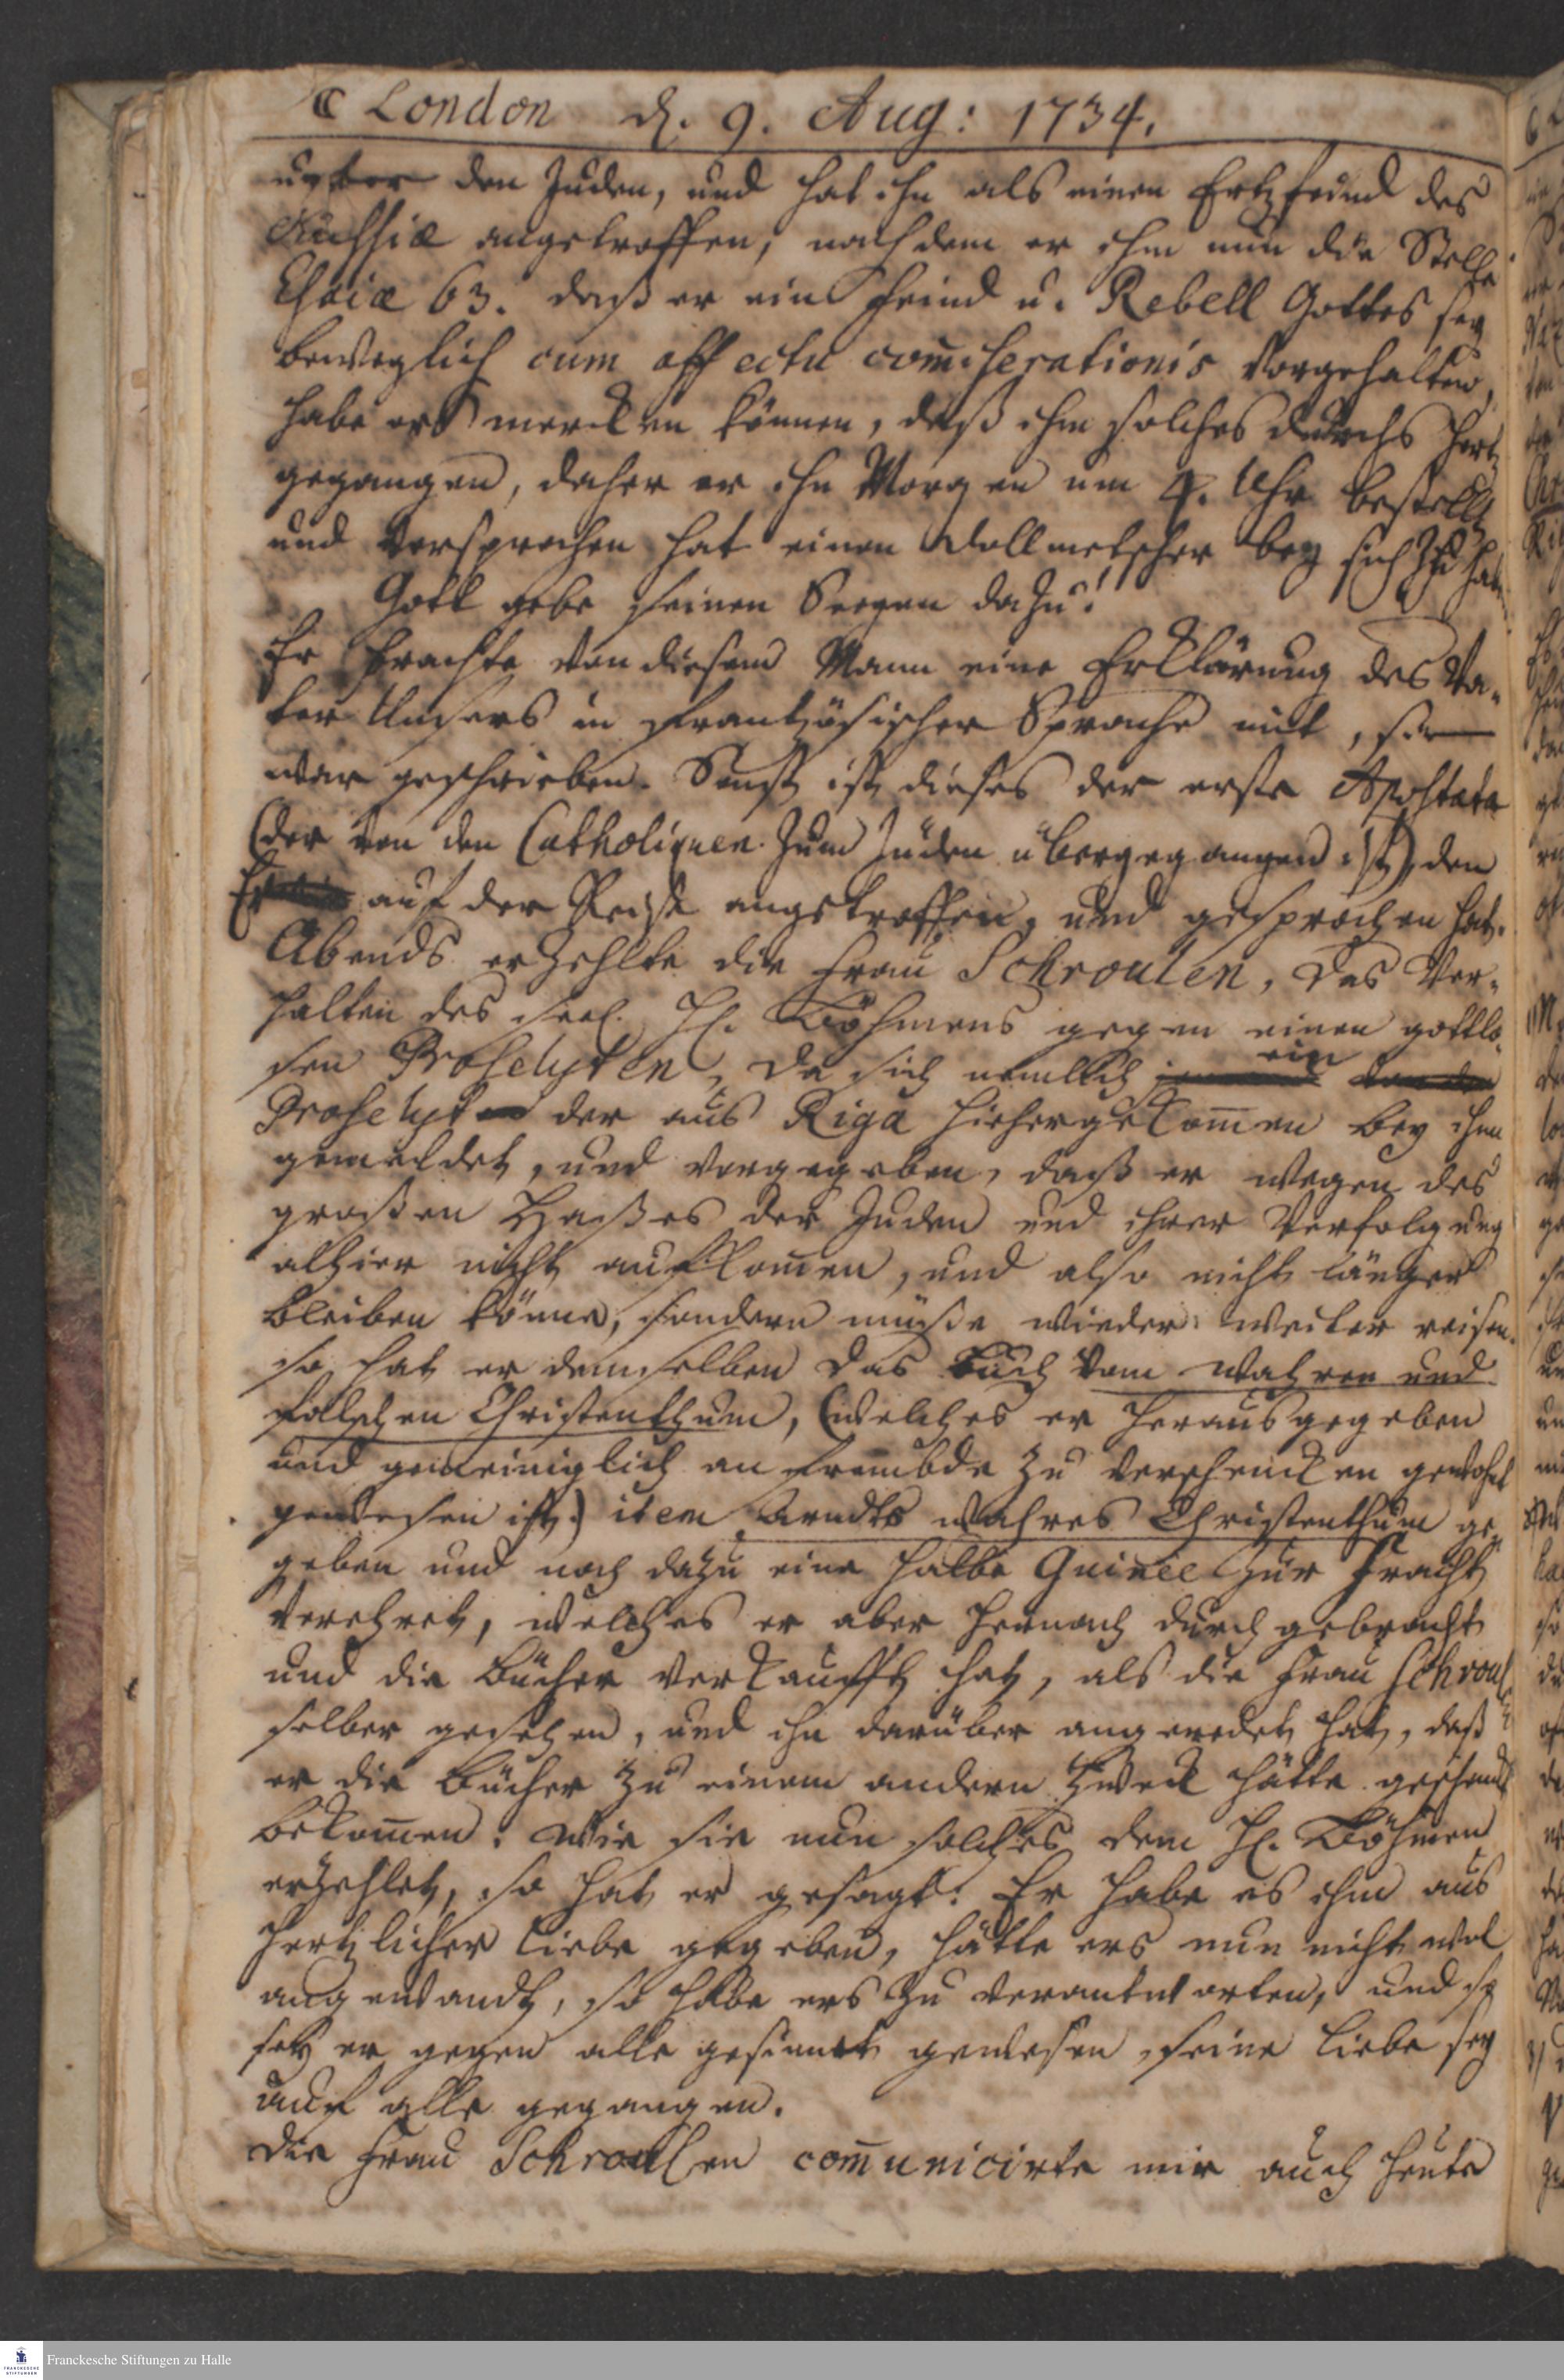 ☾ London d. 9. Aug: 1734.
unter den Juden, und hat ihn als einen Ertzfeind des
Meßiæ angetroffen, nachdem er ihm nun die Stelle
Esaiæ 63. daß er ein Feind u. Rebell Gottes sey
beweglich cum affectu com̄iserationis vorgehalten,
habe er mercken können, daß ihm solches durchs Hertz
gegangen, daher er ihn Morgen um 4. Uhr bestellt
und versprochen hat einen Dollmetscher bey sich zu haben
Gott gebe seinen Seegen dazu!
Er brachte von diesem Mann eine Erklärung des Va-
ter Unsers in Frantzösischer Sprache mit, sie
war geschrieben. Sonst ist dieses der erste Apostata
(der von den Catholiquen zum Juden übergegangen ist), den
Er auf der Reise angetroffen, und gesprochen hat.
Abends erzehlte die Frau Schroulen, das Ver-
halten des seel. H. Böhmens gegen einen gottlo-
sen Proselyten, da sich nemlich ein
Proselyt der aus Riga hiehergekom̄en bey ihm
gemeldet, und vorgegeben, daß er wegen des
großen Haßes der Juden und ihrer Verfolgung
alhier nicht aufkom̄en, und also nicht länger
bleiben könne, sondern müße wieder weiter reisen.
so hat er demselben das Buch vom wahren und
falschen Christenthum, (welches er herausgegeben
und gemeiniglich an Frembde zu verschencken gewohnt
gewesen ist.) item Arndts wahres Christenthum ge-
geben und noch dazu eine halbe Guinee zur Fracht
verehret, welches er aber hernach durchgebracht
und die Bücher verkaufft hat, als die Frau Schroul:
selber gesehen, und ihn darüber angeredet hat, daß
er die Bücher zu einem andern Zweck hätte geschenckt
bekom̄en. Wie sie nun solches dem H. Böhmen
erzehlet, so hat er gesagt: Er habe es ihm aus
hertzlicher Liebe gegeben, hätte ers nun nicht wol
angewandt, so habe ers zu verantworten, und so
sey er gegen alle gesinnet gewesen, seine Liebe sey
auf alle gegangen.
Die Frau Schroulen com̄unicirte mir auch heute
Franckesche Stiftungen zu Halle